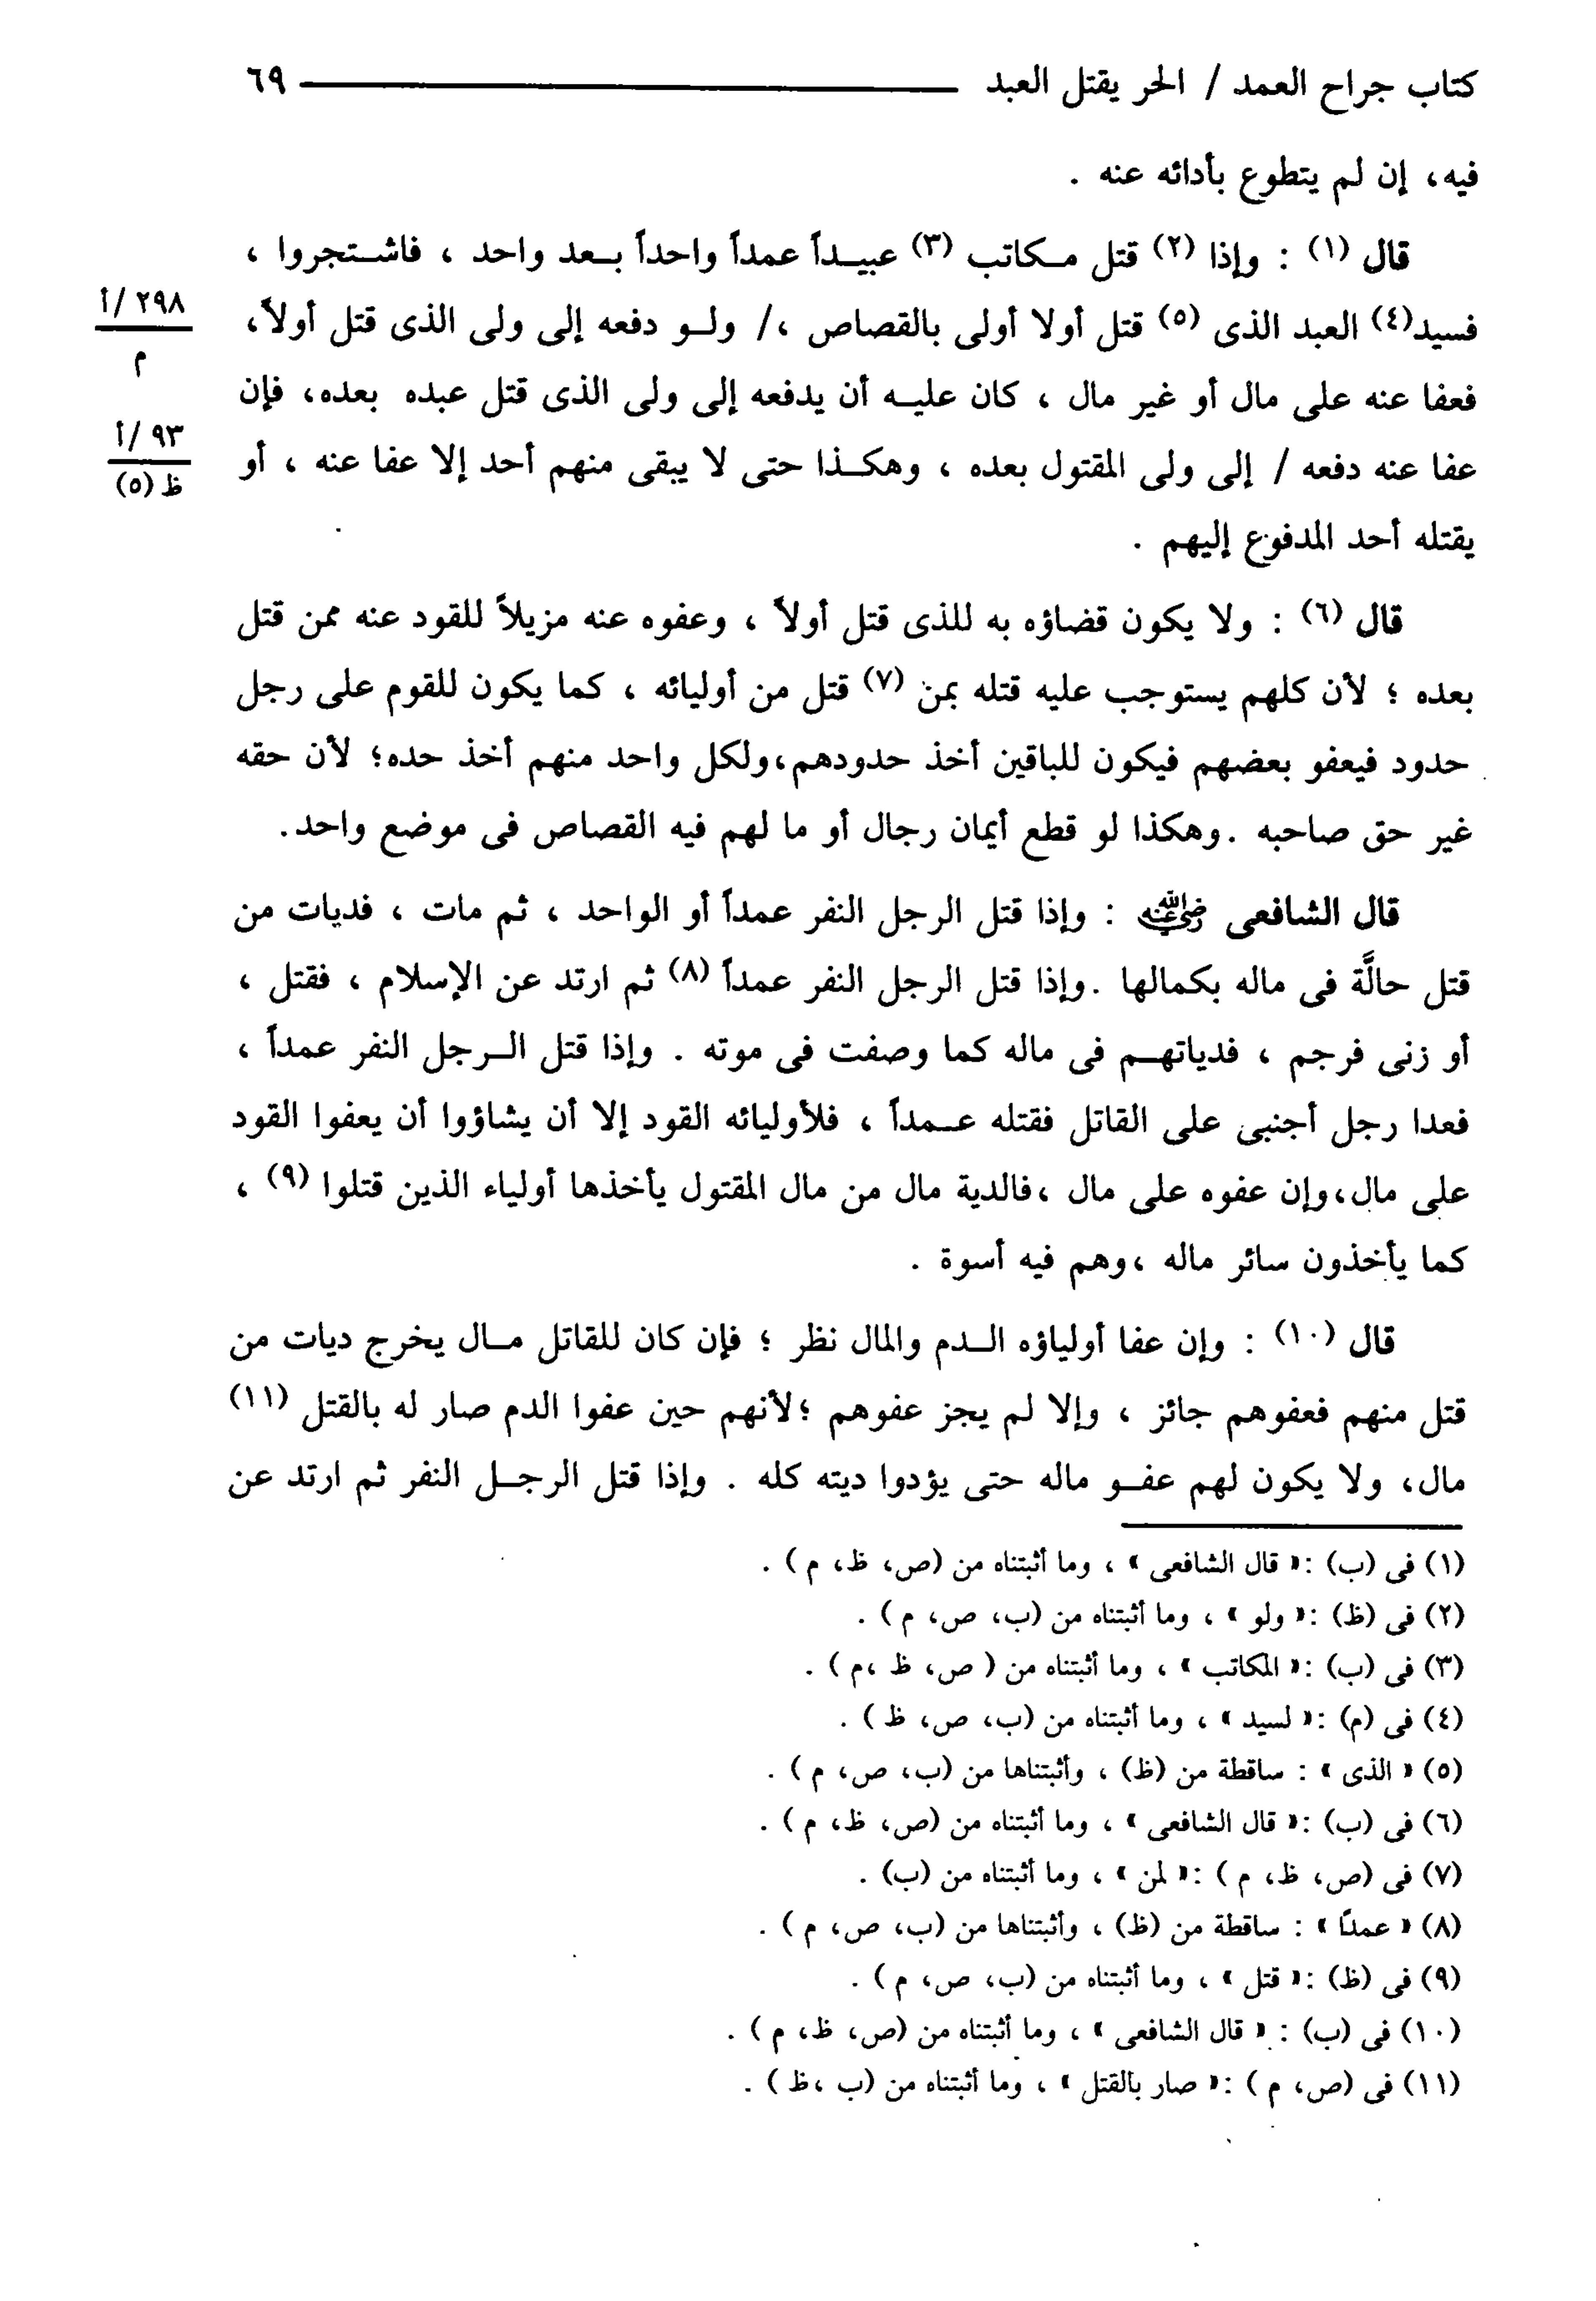 كتاب جراح العمد / الحر يقتل العبد ـــــــــــــــــ ٦٩
فيه، إن لم يتطوع بأدائه عنه .
قال (١) : وإذا (٢) قتل مكاتب (٣) عبيداً عمداً واحداً بعد واحد ، فاشتجروا ،
فسيد(٤) العبد الذى (٥) قتل أولا أولى بالقصاص ،/ ولو دفعه إلى ولى الذى قتل أولاً،
٢٩٨/ أ
م
فعفا عنه على مال أو غير مال ، كان عليه أن يدفعه إلى ولى الذى قتل عبده بعده، فإن
عفا عنه دفعه / إلى ولى المقتول بعده ، وهكذا حتى لا يبقى منهم أحد إلا عفا عنه ، أو
٩٣/ أ
ظ (٥)
يقتله أحد المدفوع إليهم .
قال (٦) : ولا يكون قضاؤه به للذى قتل أولاً ، وعفوه عنه مزيلاً للقود عنه ممن قتل
بعده ؛ لأن كلهم يستوجب عليه قتله بمن (٧) قتل من أوليائه ، كما يكون للقوم على رجل
حدود فيعفو بعضهم فيكون للباقين أخذ حدودهم،ولكل واحد منهم أخذ حده؛ لأن حقه
غير حق صاحبه .وهكذا لو قطع أيمان رجال أو ما لهم فيه القصاص فى موضع واحد.
قال الشافعى رضي الله عنه : وإذا قتل الرجل النفر عمداً أو الواحد ، ثم مات ، فديات من
قتل حالَّة فى ماله بكمالها .وإذا قتل الرجل النفر عمداً (٨) ثم ارتد عن الإسلام ، فقتل ،
أو زنى فرجم ، فدياتهم فى ماله كما وصفت فى موته . وإذا قتل الرجل النفر عمداً ،
فعدا رجل أجنبى على القاتل فقتله عمداً ، فلأوليائه القود إلا أن يشاؤوا أن يعفوا القود
على مال،وإن عفوه على مال ،فالدية مال من مال المقتول يأخذها أولياء الذين قتلوا (٩) ،
كما يأخذون سائر ماله ،وهم فيه أسوة .
قال (١٠) : وإن عفا أولياؤه الدم والمال نظر ؛ فإن كان للقاتل مال يخرج ديات من
قتل منهم فعفوهم جائز ، وإلا لم يجز عفوهم ؛لأنهم حين عفوا الدم صار له بالقتل (١١)
مال، ولا يكون لهم عفو ماله حتى يؤدوا ديته كله . وإذا قتل الرجل النفر ثم ارتد عن
(١) فى (ب) :« قال الشافعى » ، وما أثبتناه من (ص، ظ، م ) .
(٢) فى (ظ) :« ولو » ، وما أثبتناه من (ب، ص، م ) .
(٣) فى (ب) :« المكاتب » ، وما أثبتناه من ( ص، ظ ،م ) .
(٤) فى (م) :« لسيد » ، وما أثبتناه من (ب، ص، ظ ) .
(٥) « الذى » : ساقطة من (ظ) ، وأثبتناها من (ب، ص، م ) .
(٦) فى (ب) :« قال الشافعى » ، وما أثبتناه من (ص، ظ، م ) .
(٧) فى (ص، ظ، م ) :« لمن » ، وما أثبتناه من (ب) .
(٨) « عمداً » : ساقطة من (ظ) ، وأثبتناها من (ب، ص، م ) .
(٩) فى (ظ) :« قتل » ، وما أثبتناه من (ب، ص، م ) .
(١٠) فى (ب) : « قال الشافعى » ، وما أثبتناه من (ص، ظ، م ) .
(١١) فى (ص، م ) :« صار بالقتل » ، وما أثبتناه من (ب ،ظ ) .